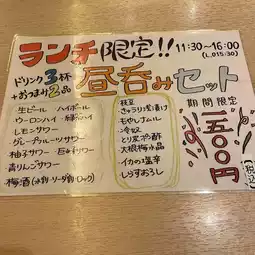 ランチ限定!! 11:30～16:00
(L.O15:30)
ドリンク3杯
+おつまみ2品
昼呑みセット
期間限定
生ビール・ハイボール
ウーロンハイ・緑茶ハイ
レモンサワー
グレープフルーツサワー
柚子サワー・巨峰サワー
青りんごサワー
梅酒(水割・ソーダ割・ロック)
枝豆
きゅうり一本漬け
もやしナムル
冷奴
とり皮ポン酢
大根梅水晶
イカの塩辛
しらすおろし
1500円
(税込)